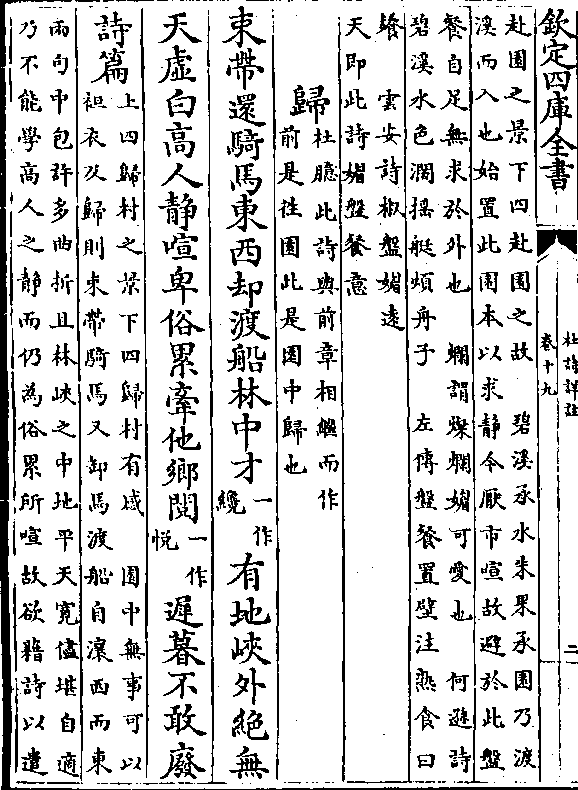 欽定四庫全書
杜詩詳註
卷十九
二
赴園之景下四赴園之故 碧溪承水朱果承園乃渡
溪而入也始置此園本以求靜今厭市喧故避於此盤
餐自足無求於外也 爛謂燦爛媚可愛也 何遜詩
碧溪水色濶揺艇煩舟子 左傳盤餐置璧注熟食曰
餐 雲安詩椒盤媚遠
天即此詩媚盤餐意
歸
杜臆此詩與前章相繼而作
前是往園此是園中歸也
束帶還騎馬東西却渡船林中才一作纔有地峽外絶無
天虛白高人靜喧卑俗累牽他鄉閲一作悅遲暮不敢廢
詩篇
上四歸村之景下四歸村有感 園中無事可以
袒衣及歸則束帶騎馬又卸馬渡船自瀼西而東
兩句中包許多曲折且林峽之中地平天寛儘堪自適
乃不能學高人之靜而仍為俗累所喧故欲藉詩以遣